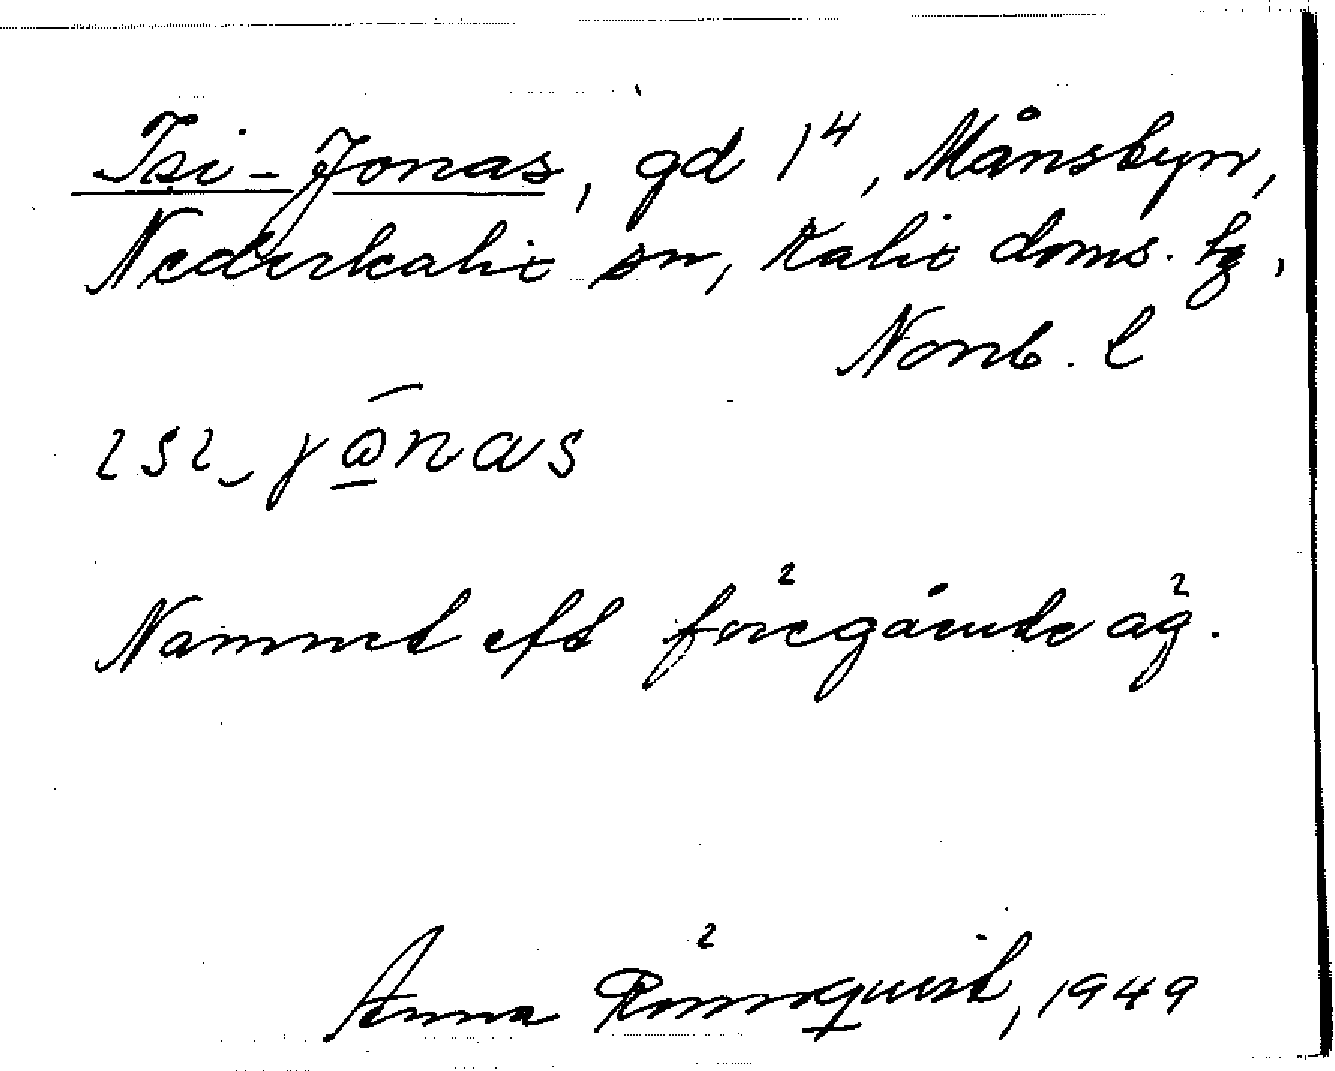 Isi-Jonas, gd 1⁴, Månsbyn,
Nederkalix sn, Kalix doms. tg,
Norrb. l
ɩsɩ-jōnas
Namnet eft föregående äg.
Anna Römquist, 1949